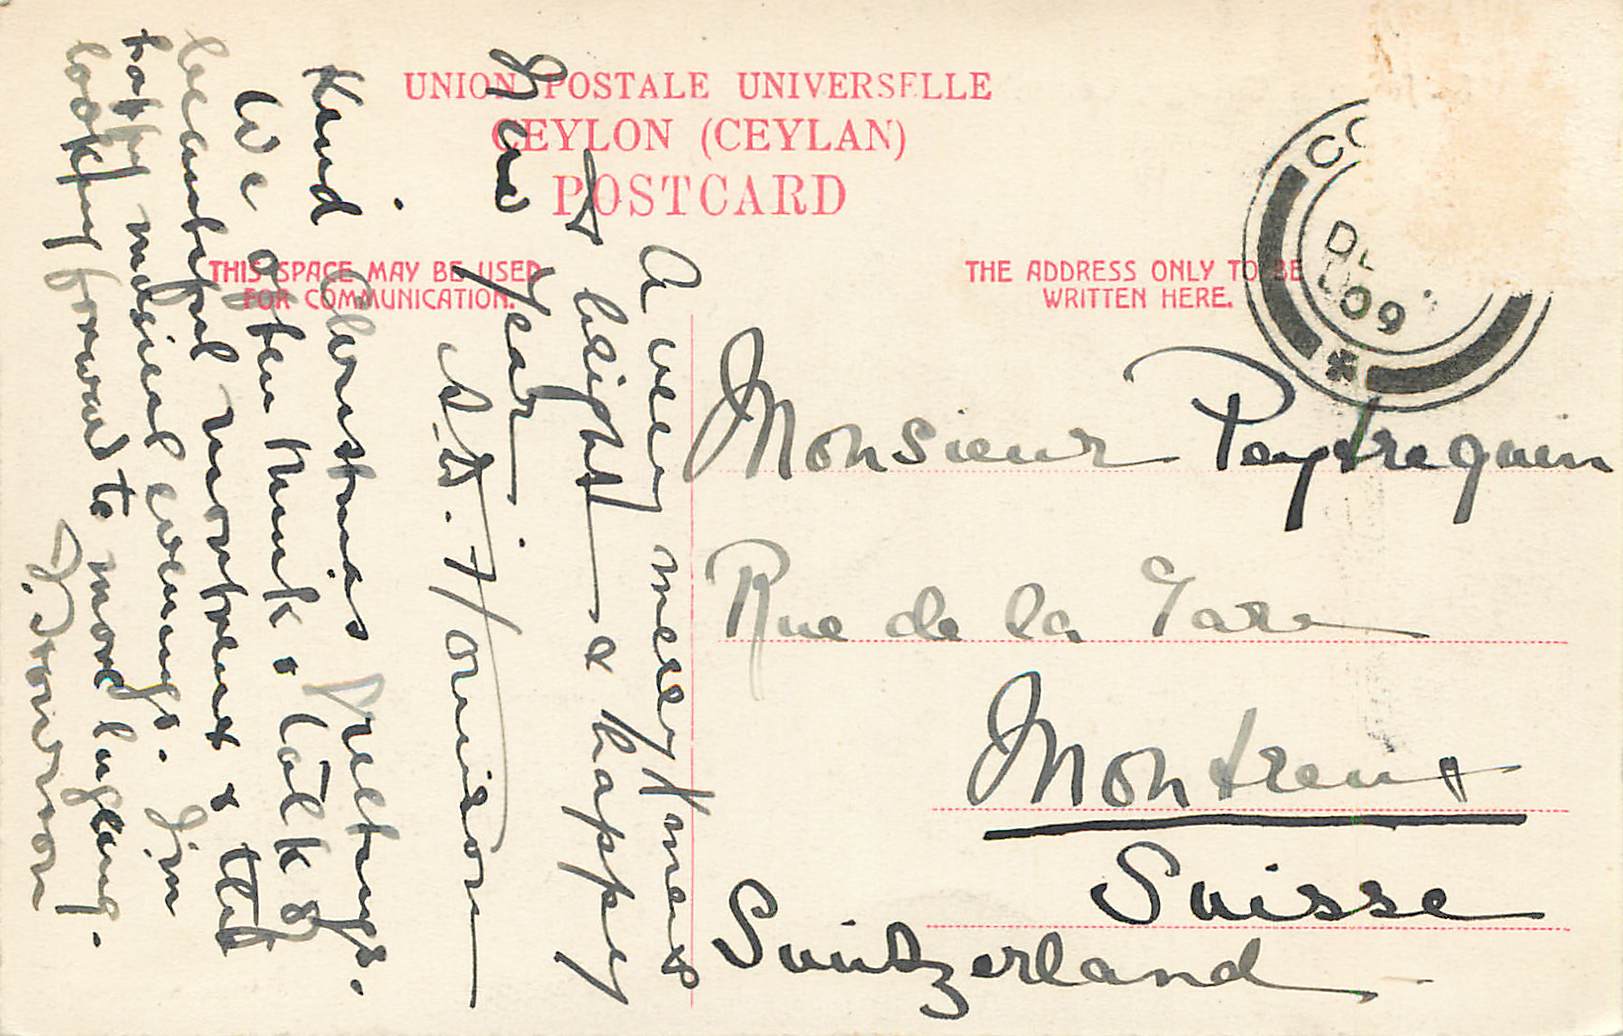 UNION POSTALE UNIVERSELLE
CEYLON (CEYLAN)
POSTCARD
THIS SPACE MAY BE USED
FOR COMMUNICATION.
THE ADDRESS ONLY TO BE
WRITTEN HERE.
CO
DE
09
Monsieur Peytrequin
Rue de la Gare
Montreux
Suisse
Switzerland
A very merry Xmas
& bright & happy
New Year.
Kind Christmas Greetings.
We often think & talk of
beautiful montreux & the
musical evenings. Jim
looking forward to more